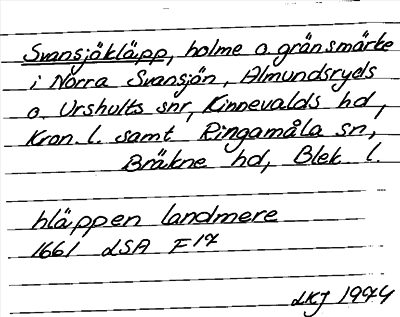 Svansjökläpp, holme o. gränsmärke
i Norra Svansjön, Almundsryds
o. Urshults snr, Kinnevalds hd,
Kron. l. samt Ringamåla sn,
Bräkne hd, Blek l.
kläppen landmere
1661 LSA F 17
LKJ 1974